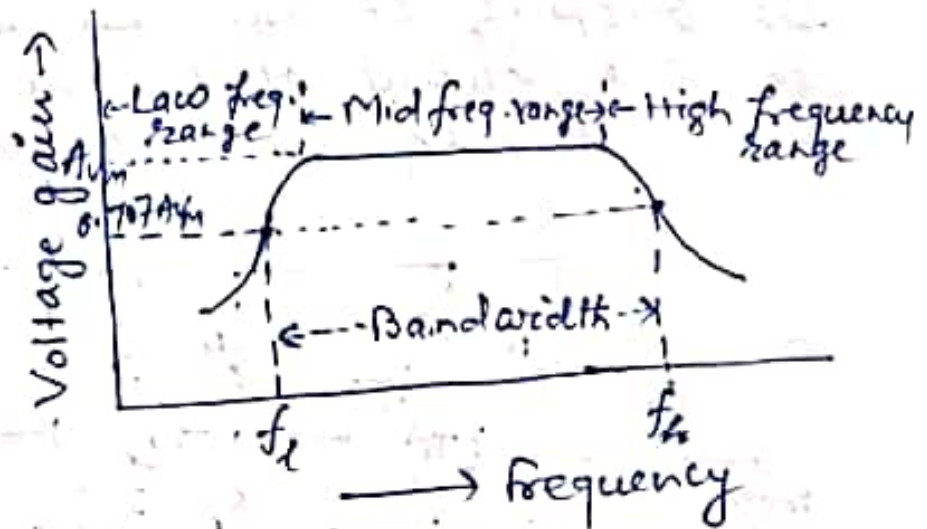 Voltage gain →
←Low freq. range
← Mid freq. range →
← High frequency range
Avm
0.707Avm
←---Bandwidth--→
fl
fh
→ frequency